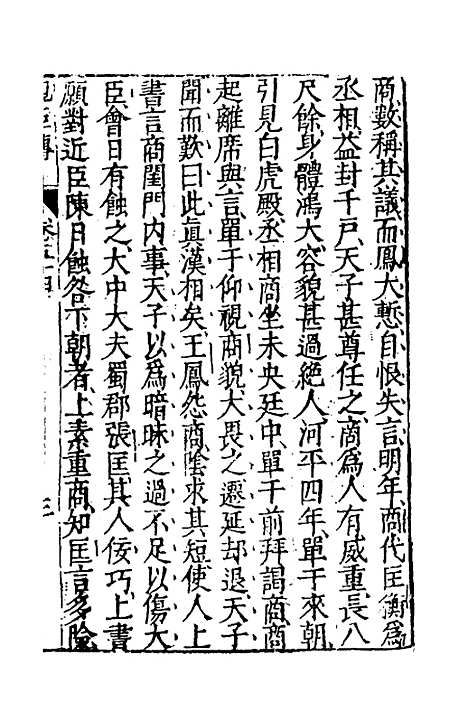 商數稱其議而鳳大慙自恨失言明年商代匡衡爲
丞相益封千戶天子甚尊任之商爲人有威重長八
尺餘身體鴻大容貌甚過絕人河平四年單于來朝
引見白虎殿丞相商坐未央廷中單于前拜謁商商
起離席與言單于仰視商貌大畏之遷延却退天子
聞而歎曰此眞漢相矣王鳳怨商陰求其短使人上
書言商閨門内事天子以爲暗昧之過不足以傷大
臣會日有蝕之大中大夫蜀郡張匡其人佞巧上書
願對近臣陳日蝕咎下朝者上素重商知匡言多險
三